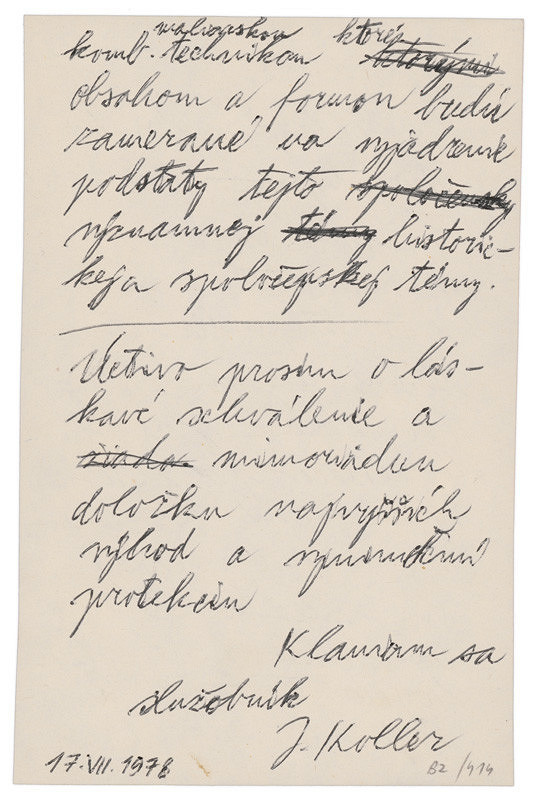 maliarskou ktoré
komb. technikou ktorými
obsahom a formou budú
zamerané na vyjadrenie
podstaty tejto spoločensky
významnej témy historic-
kej a spoločenskej témy.
Uctivo prosím o lás-
kavé schválenie a
žiada mimoriadnu
doložku najvyšších
výhod a
protekciu
Klaniam sa
služobník
J. Koller
17.VII.1978
BZ/414